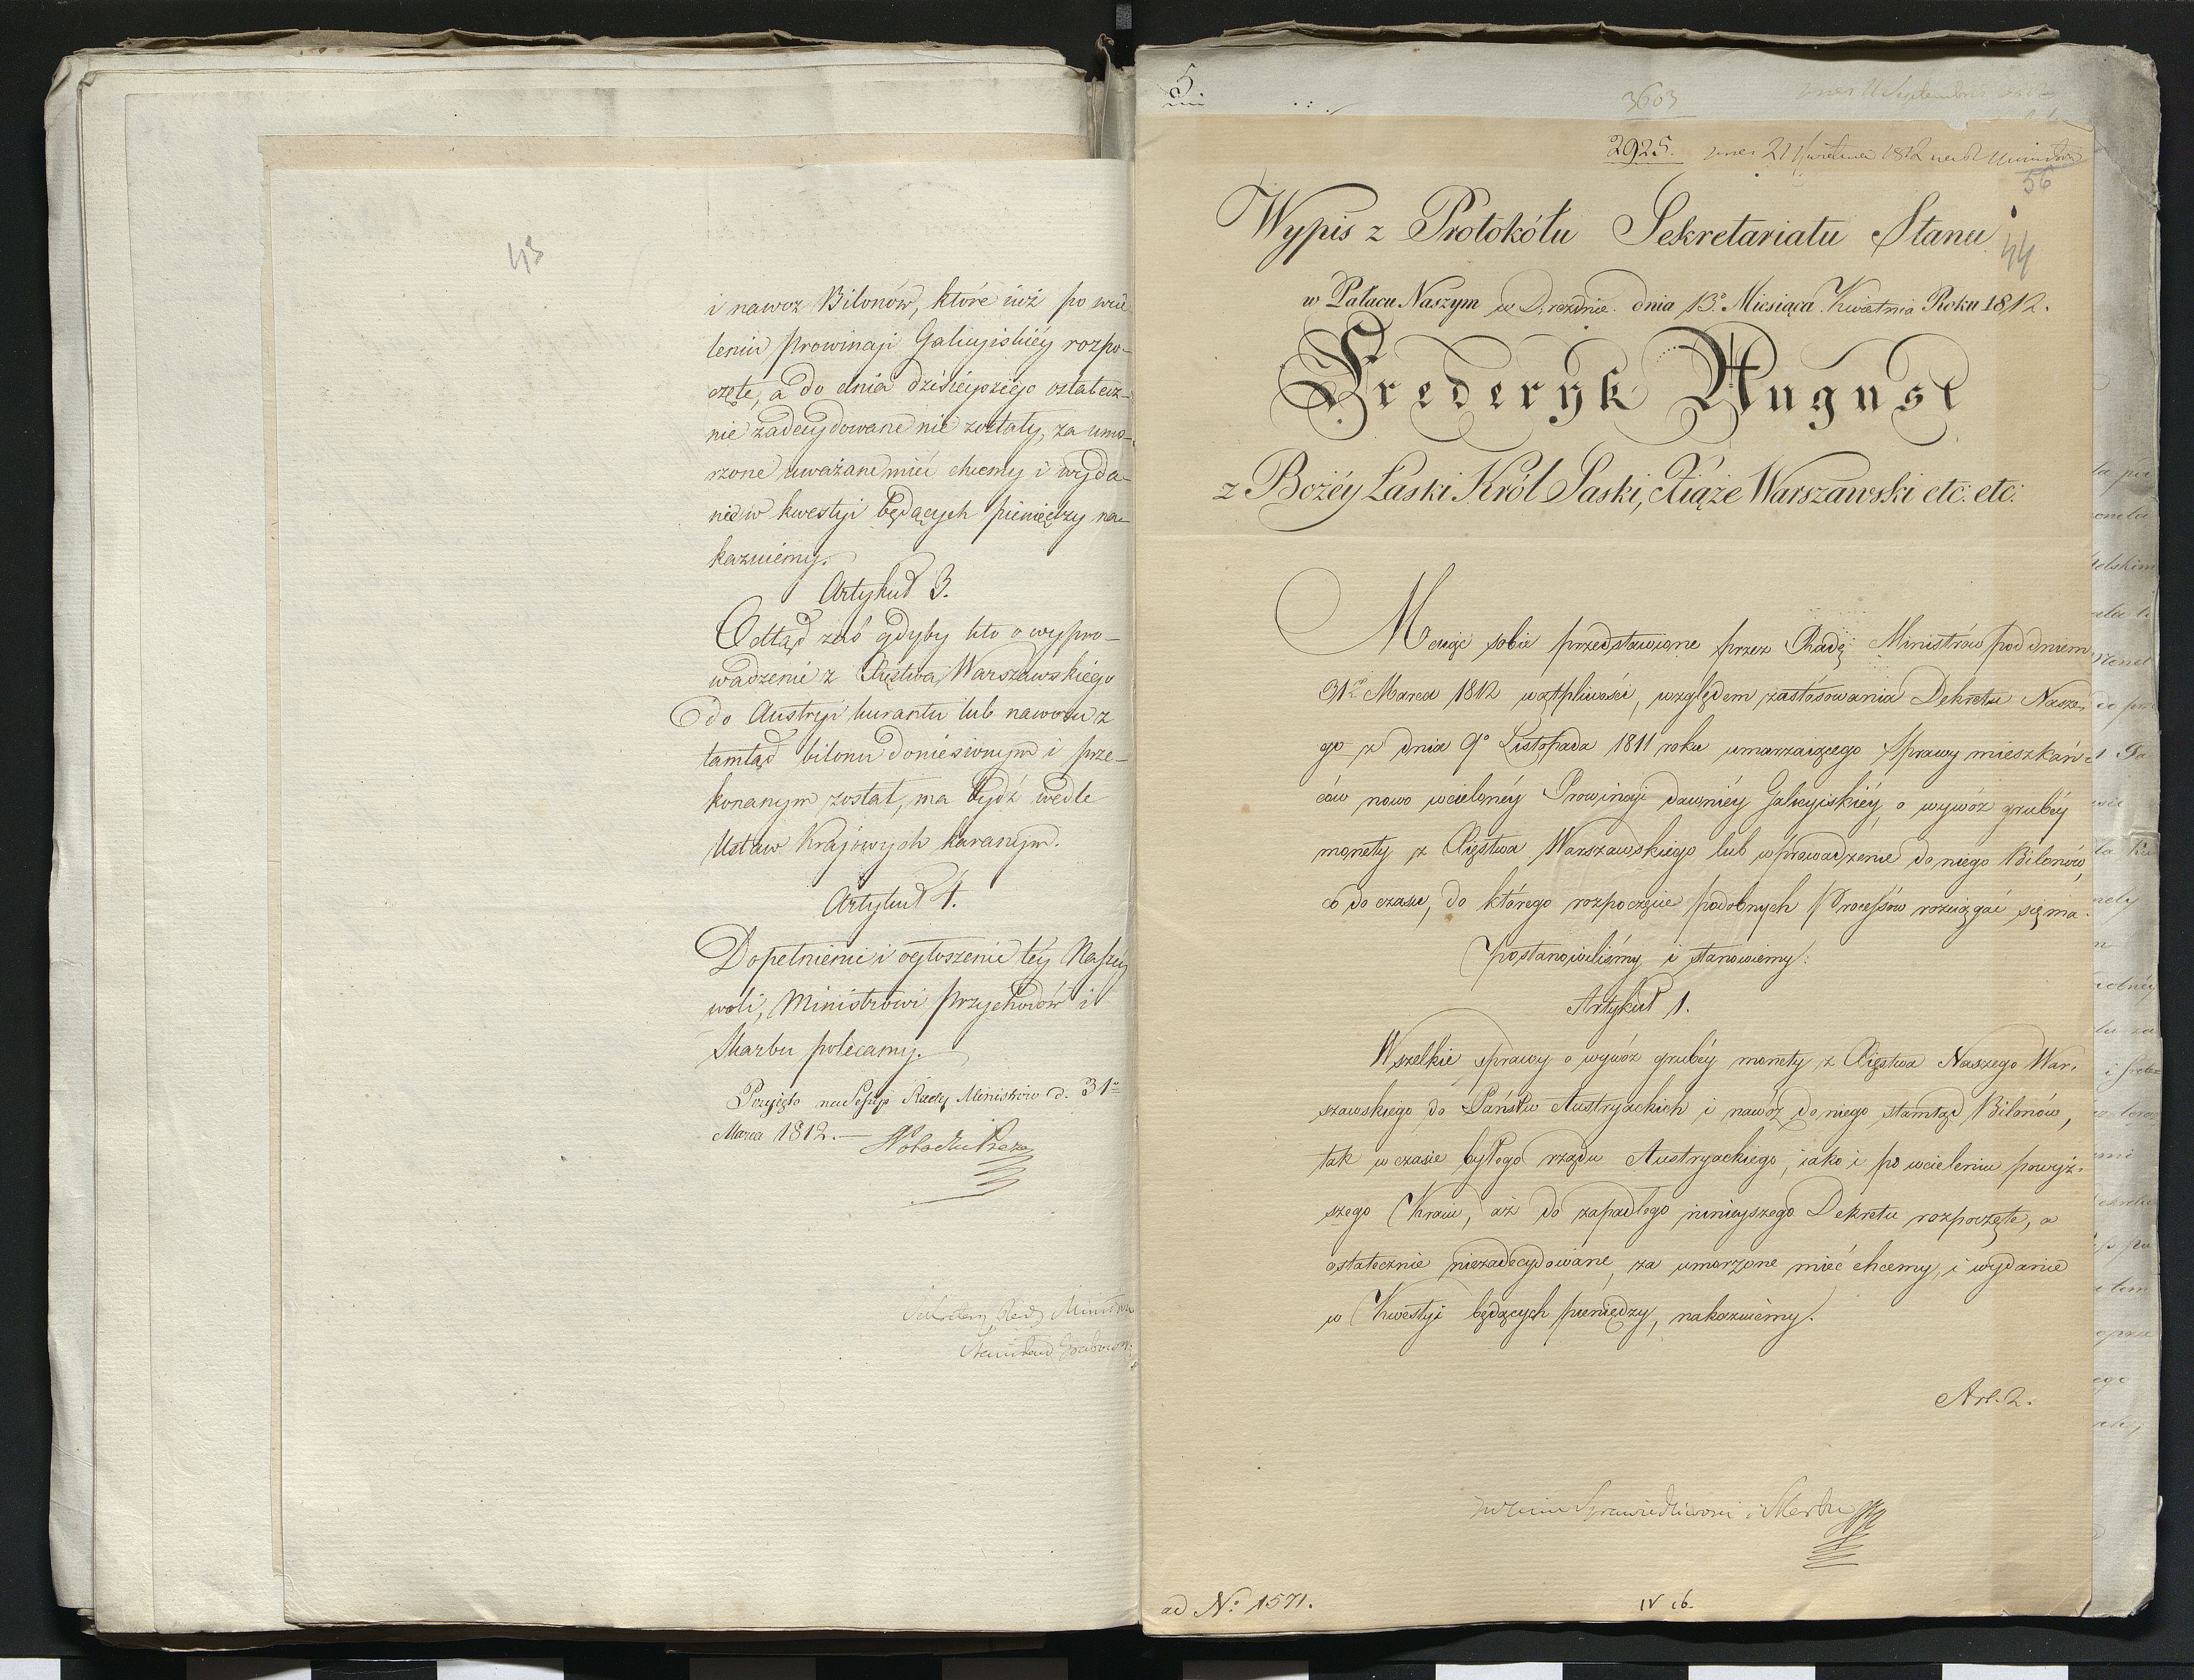 43
i nawoz Bilonów, które iuż po wcie
leniu Prowincyi Galicyiskiéy rozpo-
częte, a do dnia dzisieyszego ostatecz-
nie zadecydowane nie zostały, za umo-
rzone uważane mieć chcemy i wyda-
nie w kwestyi będących pieniędzy na-
kazuiemy.
Artykuł 3.
Odtąd zaś gdyby kto o wypro-
wadzenie z Xięstwa Warszawskiego
do Austryi kurantu lub nawozu z
tamtąd bilonu doniesionym i prze-
konanym został, ma bydź wedle
Ustaw Kraiowych karanym.
Artykuł 4.
Dopełnienie i ogłoszenie téy Naszéy
woli, Ministrowi Przychodów i
Skarbu polecamy.
Przyięto na Sessyi Rady Ministrów d. 31
Marca 1812.—
Sekretarz Rady Ministrów
Stanisław Grabowski
5.
3603
2925. 21 Kwietnia 1812
56
Wypis z Protokółu Sekretariatu Stanu
44
w Pałacu Naszym w Dreźnie dnia 13° Miesiąca Kwietnia Roku 1812.
Fryderyk August
z Bożéy Łaski Król Saski, Xiąże Warszawski etc: etc:
Maiąc sobie przedstawione przez Radę Ministrów pod dniem
31° Marca 1812 wątpliwości, względem zastosowania Dekretu Nasze-
go z dnia 9° Listopada 1811 roku umarzaiącego sprawy mieszkań-
ców nowo wcielonéy Prowincyi dawniéy Galicyiskiéy, o wywóz grubéy
monety z Xięstwa Warszawskiego lub wprowadzenie do niego Bilonów,
co do czasu, do którego rozpoczęcie podobnych Processów rozciągać się ma.
Postanowiliśmy i stanowiemy:
Artykuł 1.
Wszelkie sprawy o wywóz grubéy monety z Xięstwa Naszego War-
szawskiego do Państw Austryackich i nawóz do niego stamtąd Bilonów,
tak w czasie byłego rządu Austryackiego, iako i po wcieleniu powyż-
szego Kraiu, aż do zapadłego ninieyszego Dekretu rozpoczęte, a
ostatecznie niezadecydowane, za umorzone mieć chcemy, i wydanie
w Kwestyi będących pieniędzy, nakazuiemy.
Art. 2.
Sprawiedliwości i Skarbu
ad N° 1571.
IV 16.